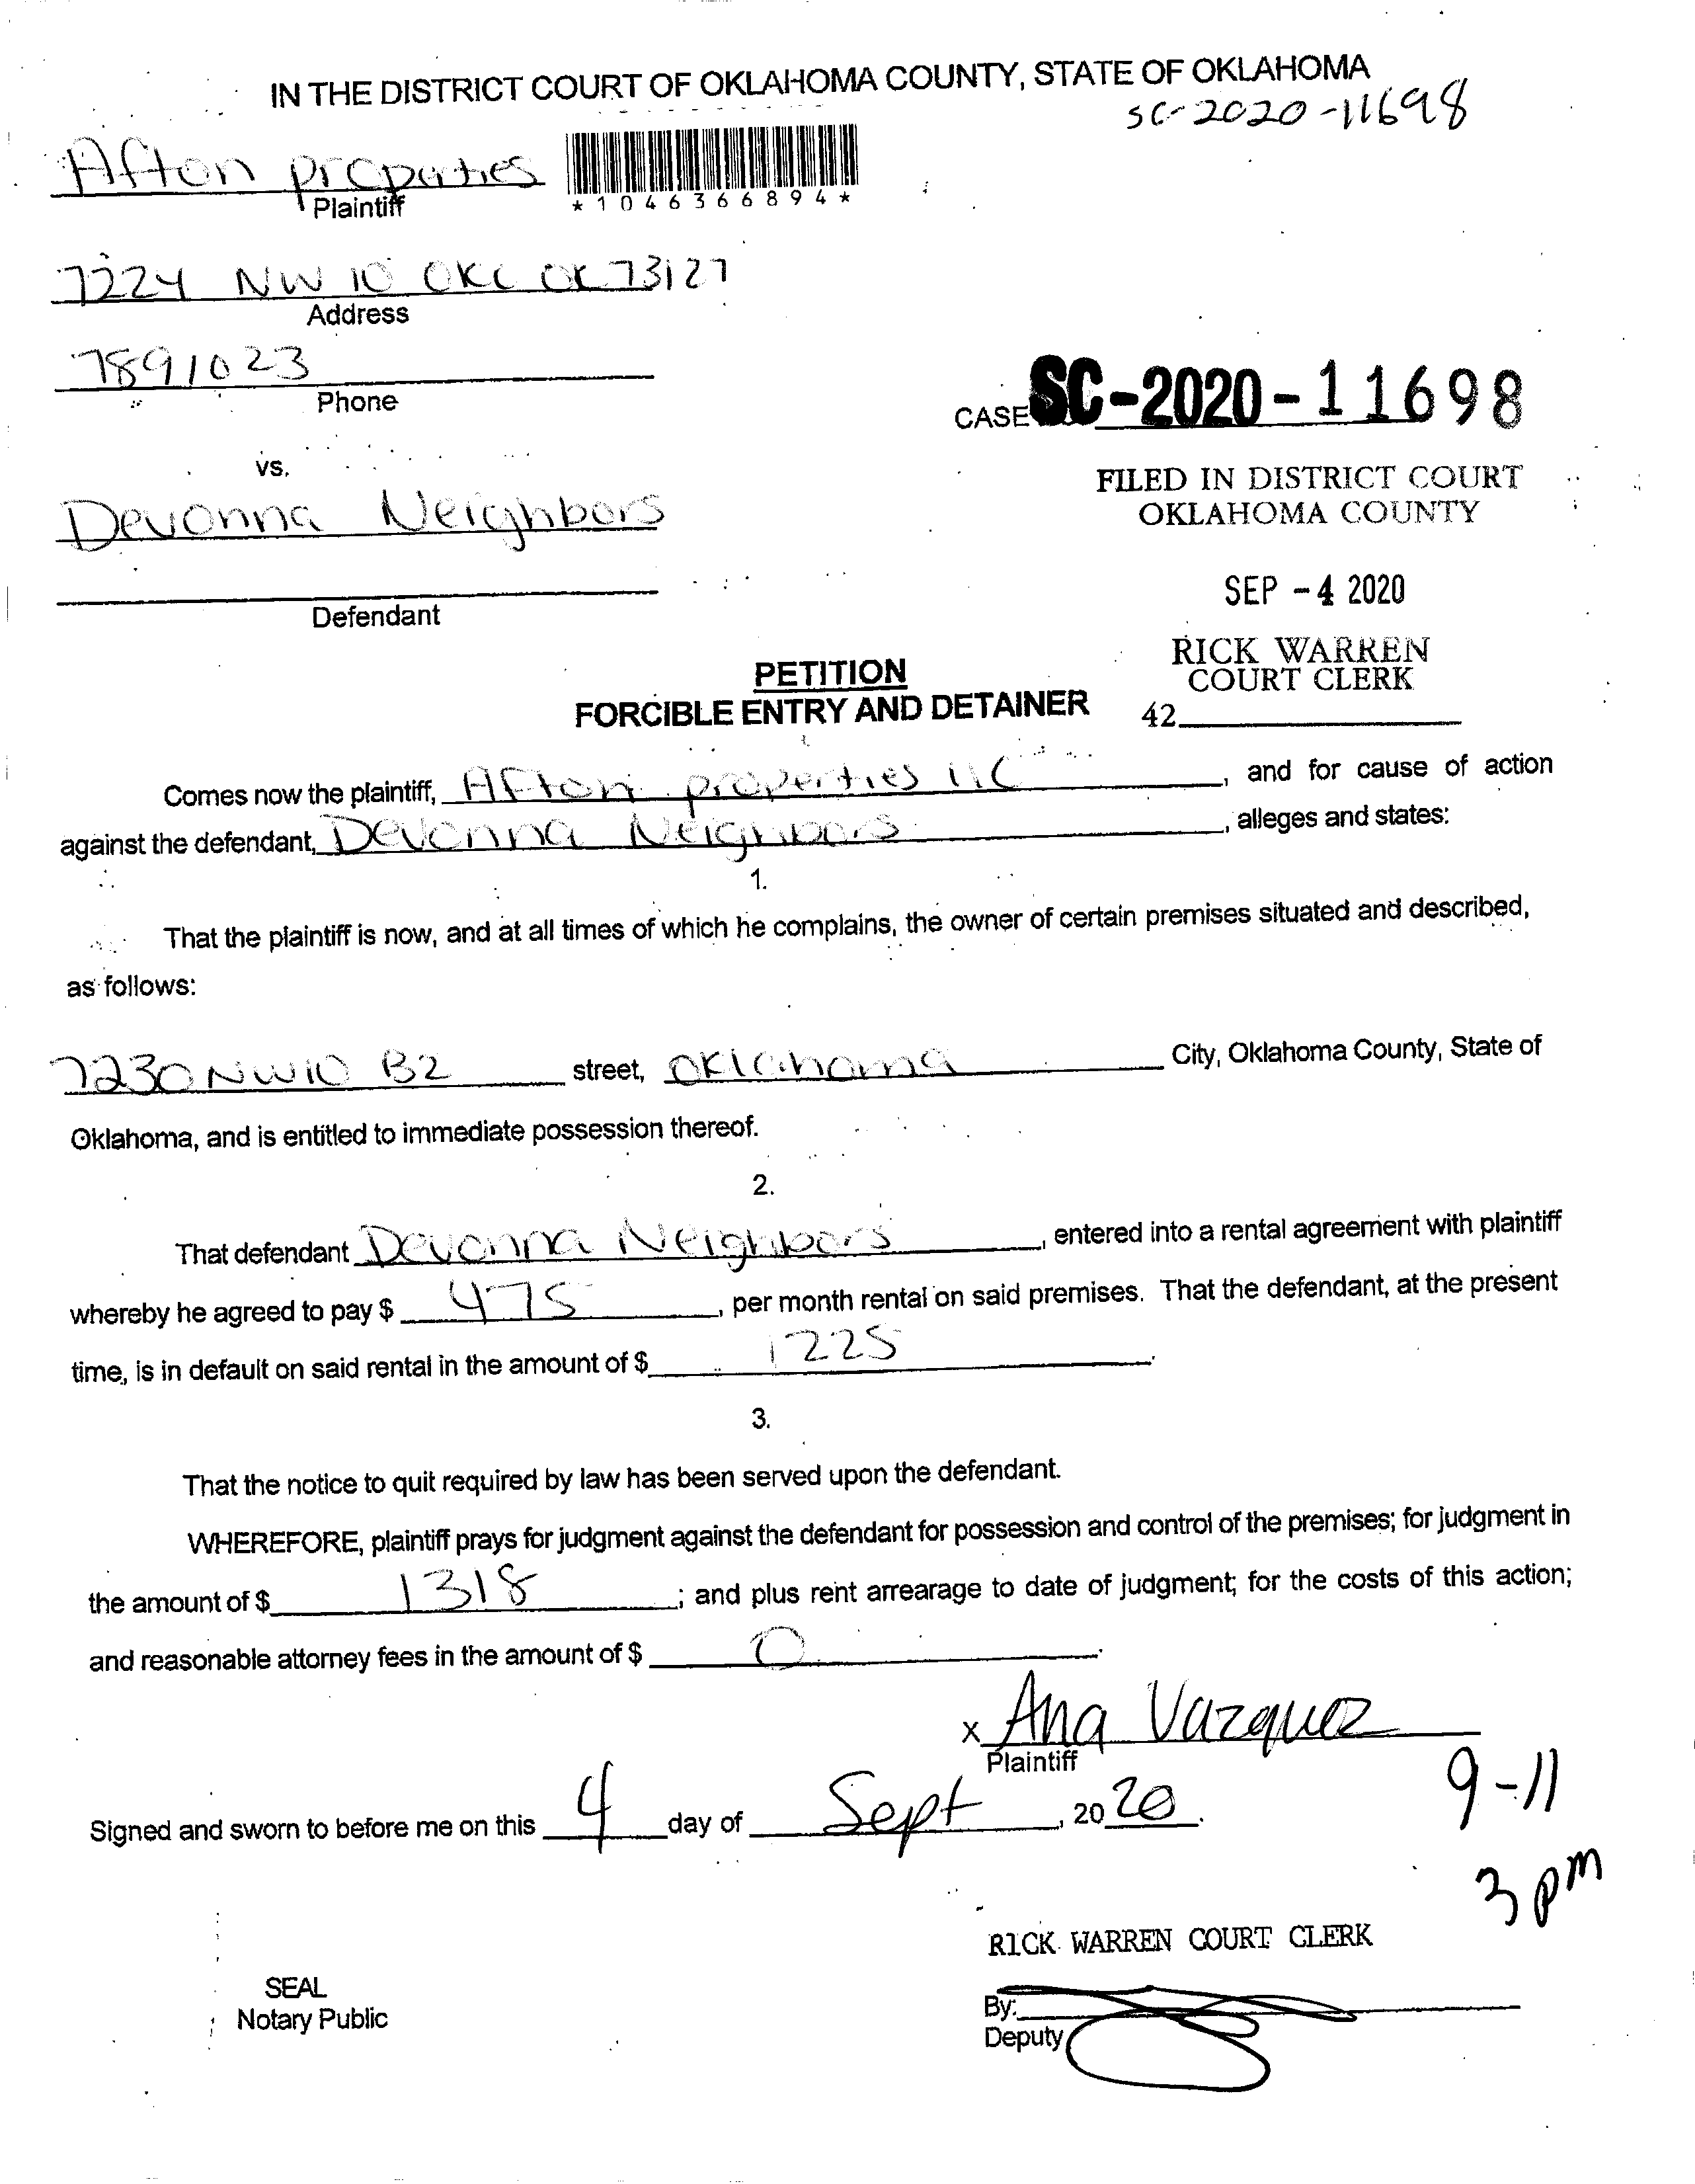 IN THE DISTRICT COURT OF OKLAHOMA COUNTY, STATE OF OKLAHOMA
SC-2020-11698
Afton properties
Plaintiff
*1046366894*
7224 NW 10 OKC OK 73127
Address
7891023
Phone
CASE SC-2020-11698
vs.
FILED IN DISTRICT COURT
OKLAHOMA COUNTY
Devonna Neighbors
SEP -4 2020
Defendant
RICK WARREN
COURT CLERK
42
PETITION
FORCIBLE ENTRY AND DETAINER
Comes now the plaintiff, Afton properties llC, and for cause of action
against the defendant, Devonna Neighbors, alleges and states:
1.
That the plaintiff is now, and at all times of which he complains, the owner of certain premises situated and described,
as follows:
7230 NW10 B2 street, Oklahoma City, Oklahoma County, State of
Oklahoma, and is entitled to immediate possession thereof.
2.
That defendant Devonna Neighbors, entered into a rental agreement with plaintiff
whereby he agreed to pay $ 475, per month rental on said premises. That the defendant, at the present
time, is in default on said rental in the amount of $ 1225.
3.
That the notice to quit required by law has been served upon the defendant.
WHEREFORE, plaintiff prays for judgment against the defendant for possession and control of the premises; for judgment in
the amount of $ 1318; and plus rent arrearage to date of judgment; for the costs of this action;
and reasonable attorney fees in the amount of $ 0.
X Ana Vazquez
Plaintiff
9-11
3 pm
Signed and sworn to before me on this 4 day of Sept, 2020.
RICK WARREN COURT CLERK
SEAL
Notary Public
By:
Deputy